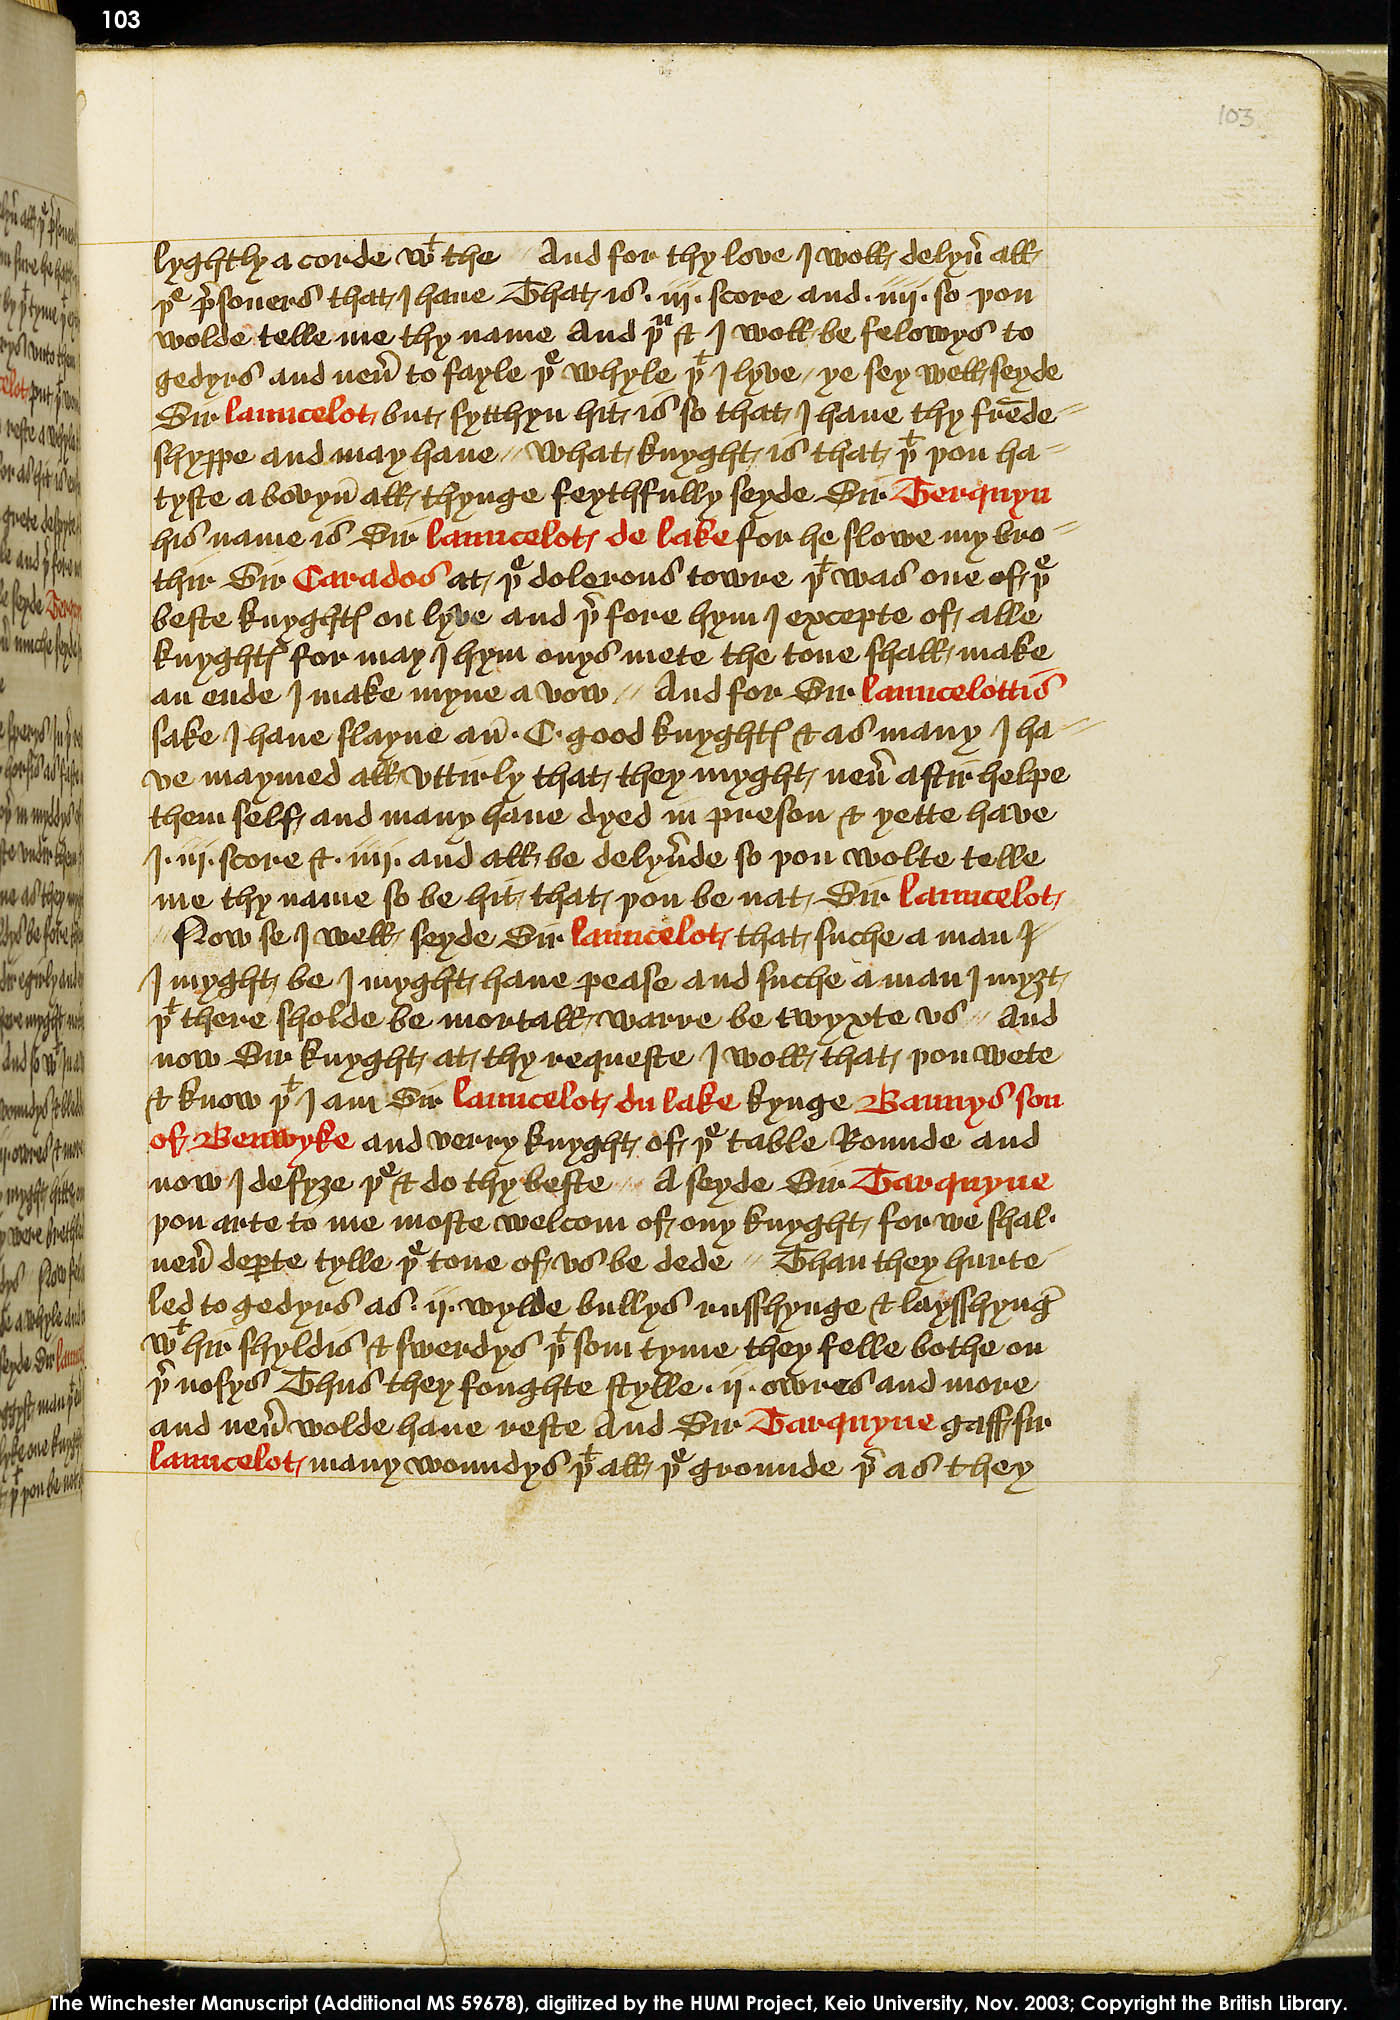 103
103
lyghtly a corde wᵗ the // And for thy love I woll delyu͛ all
þᵉ p͛soners that I haue That is .iij. score and .iiij. so þou
wolde telle me thy name And þᵘ & I woll be felowys to
gedyrs and neu͛ to fayle þᵉ whyle þᵗ I lyve // ye sey well seyde
Sir launcelot but sytthyn hit is so that I haue thy frēde //
shyppe and may haue // What knyght is that þᵗ þou ha //
tyste a bovyn̄ all thynge feythfully seyde Sir Terquyn
his name is Sir launcelot de lake for he slowe my bro //
thir Sir Carados at þᵉ dolerous towre þᵗ was one of þᵉ
beste knyghtꝭ on lyve and þ͛ fore hym I excepte of alle
knyghtꝭ for may I hym onys mete the tone shall make
an ende I make myne a vow // And for Sir launcelottis
sake I haue slayne an̄ .C. good knyghtꝭ & as many I ha //
ve maymed all vttirly that they myght neu͛ aftir helpe
them self and many haue dyed in preson & yette have
I .iij. score & .iiij. and all be delyu͛de so þou wolte telle
me thy name so be hit that þou be nat Sir launcelot
// Now se I well seyde Sir launcelot that suche a man I
I myght be I myght haue pease and suche a man I myȝt
þᵗ there sholde be mortall warre be twyxte vs // And
now Sir knyght at thy requeste I woll that þou wete
& know þᵗ I am Sir launcelot du lake kynge Bannys son
of Benwyke and verry knyght of þᵉ table Rounde and
now I defyȝe þᵉ & do thy beste // A seyde Sir Tarquyne
þou arte to me moste welcom of ony knyght for we shal
neu͛ dep̲te tylle þᵉ tone of vs be dede // Than they hurte
led to gedyrs as .ij. wylde bullys russhynge & laysshyng͛
wᵗ hir shyldis & swerdys þᵗ som tyme they felle bothe on
þ͛ nosys Thus they foughte stylle .ij. owres and more
and neu͛ wolde haue reste And Sir Tarquyne gaff sir
launcelot many woundys þᵗ all þᵉ grounde þ͛ as they
The Winchester Manuscript (Additional MS 59678), digitized by the HUMI Project, Keio University, Nov. 2003; Copyright the British Library.